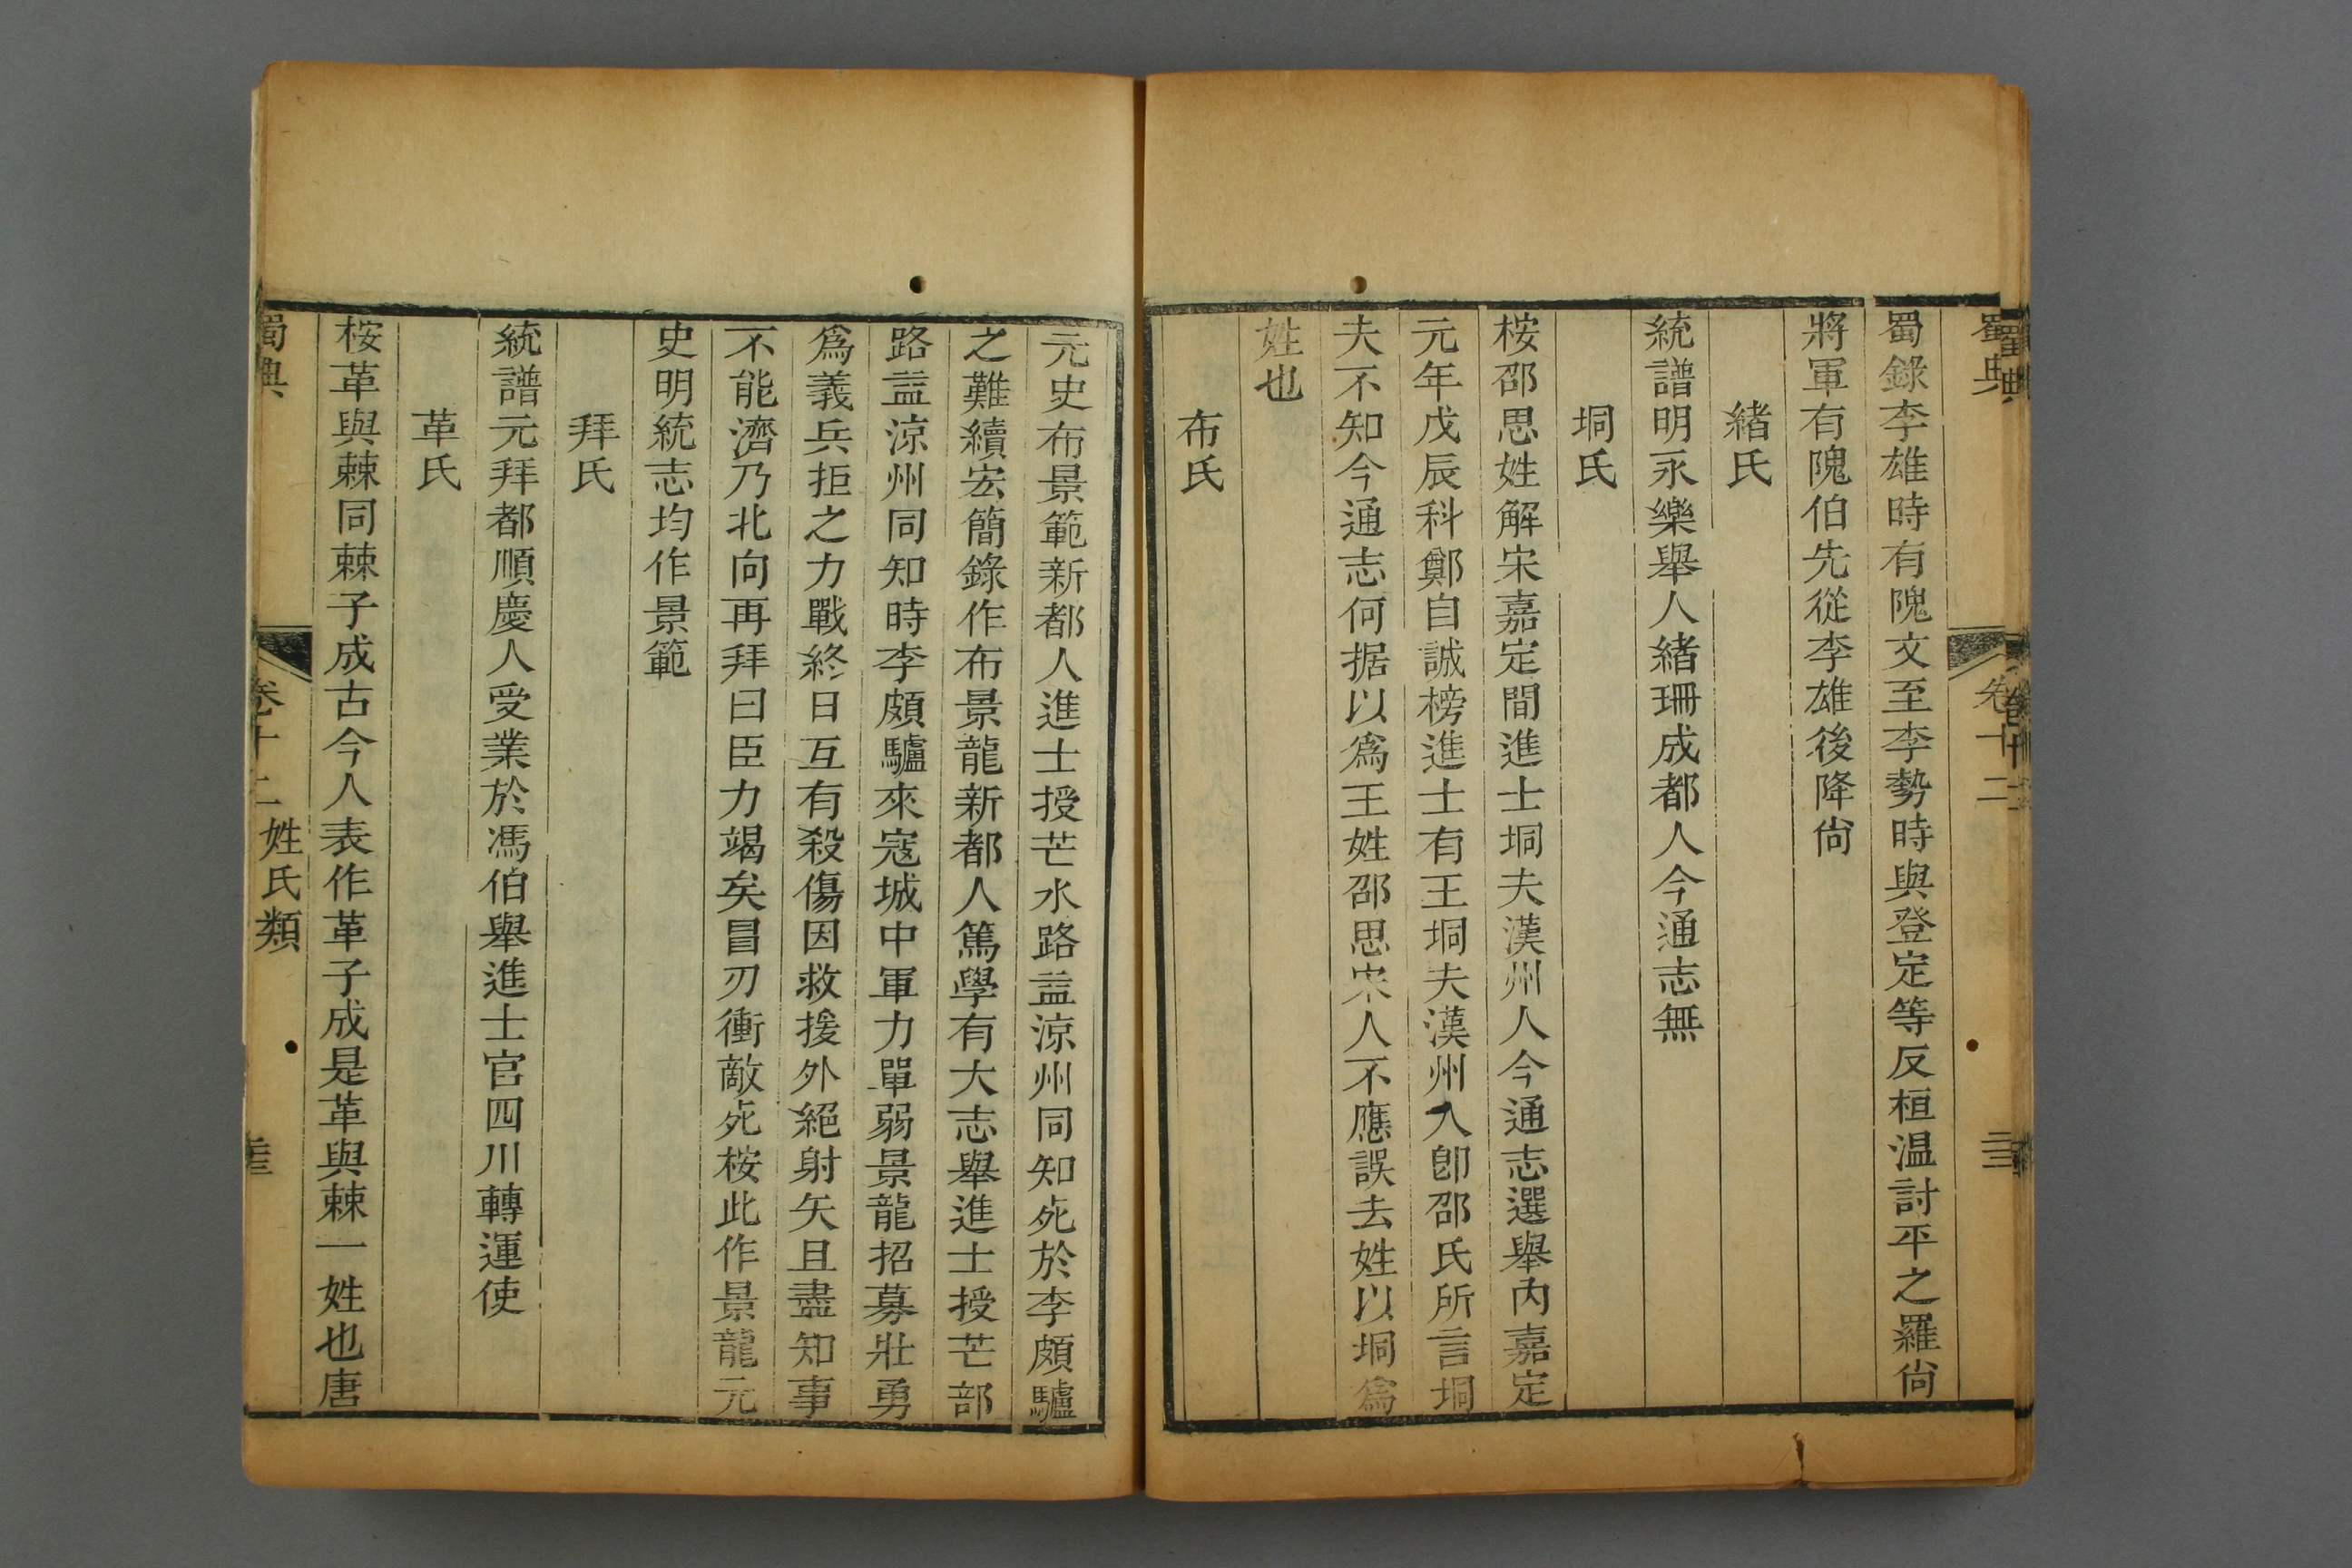 蜀典
卷十二
蜀錄李雄時有隗文至李勢時與登定等反桓温討平之羅尙
將軍有隗伯先從李雄後降尙
緒氏
統譜明永樂舉人緒珊成都人今通志無
垌氏
桉邵思姓解宋嘉定間進士垌夫漢州人今通志選舉內嘉定
元年戊辰科鄭自誠榜進士有王垌夫漢州人卽邵氏所言垌
夫不知今通志何据以爲王姓邵思宋人不應誤去姓以垌爲
姓也
布氏
元史布景範新都人進士授芒水路益涼州同知死於李頗驢
之難續宏簡錄作布景龍新都人篤學有大志舉進士授芒部
路益涼州同知時李頗驢來寇城中軍力單弱景龍招募壯勇
爲義兵拒之力戰終日互有殺傷因救援外絕射矢且盡知事
不能濟乃北向再拜曰臣力竭矣冒刃衝敵死桉此作景龍元
史明統志均作景範
拜氏
統譜元拜都順慶人受業於馮伯舉進士官四川轉運使
革氏
桉革與棘同棘子成古今人表作革子成是革與棘一姓也唐
蜀典
卷十二
姓氏類